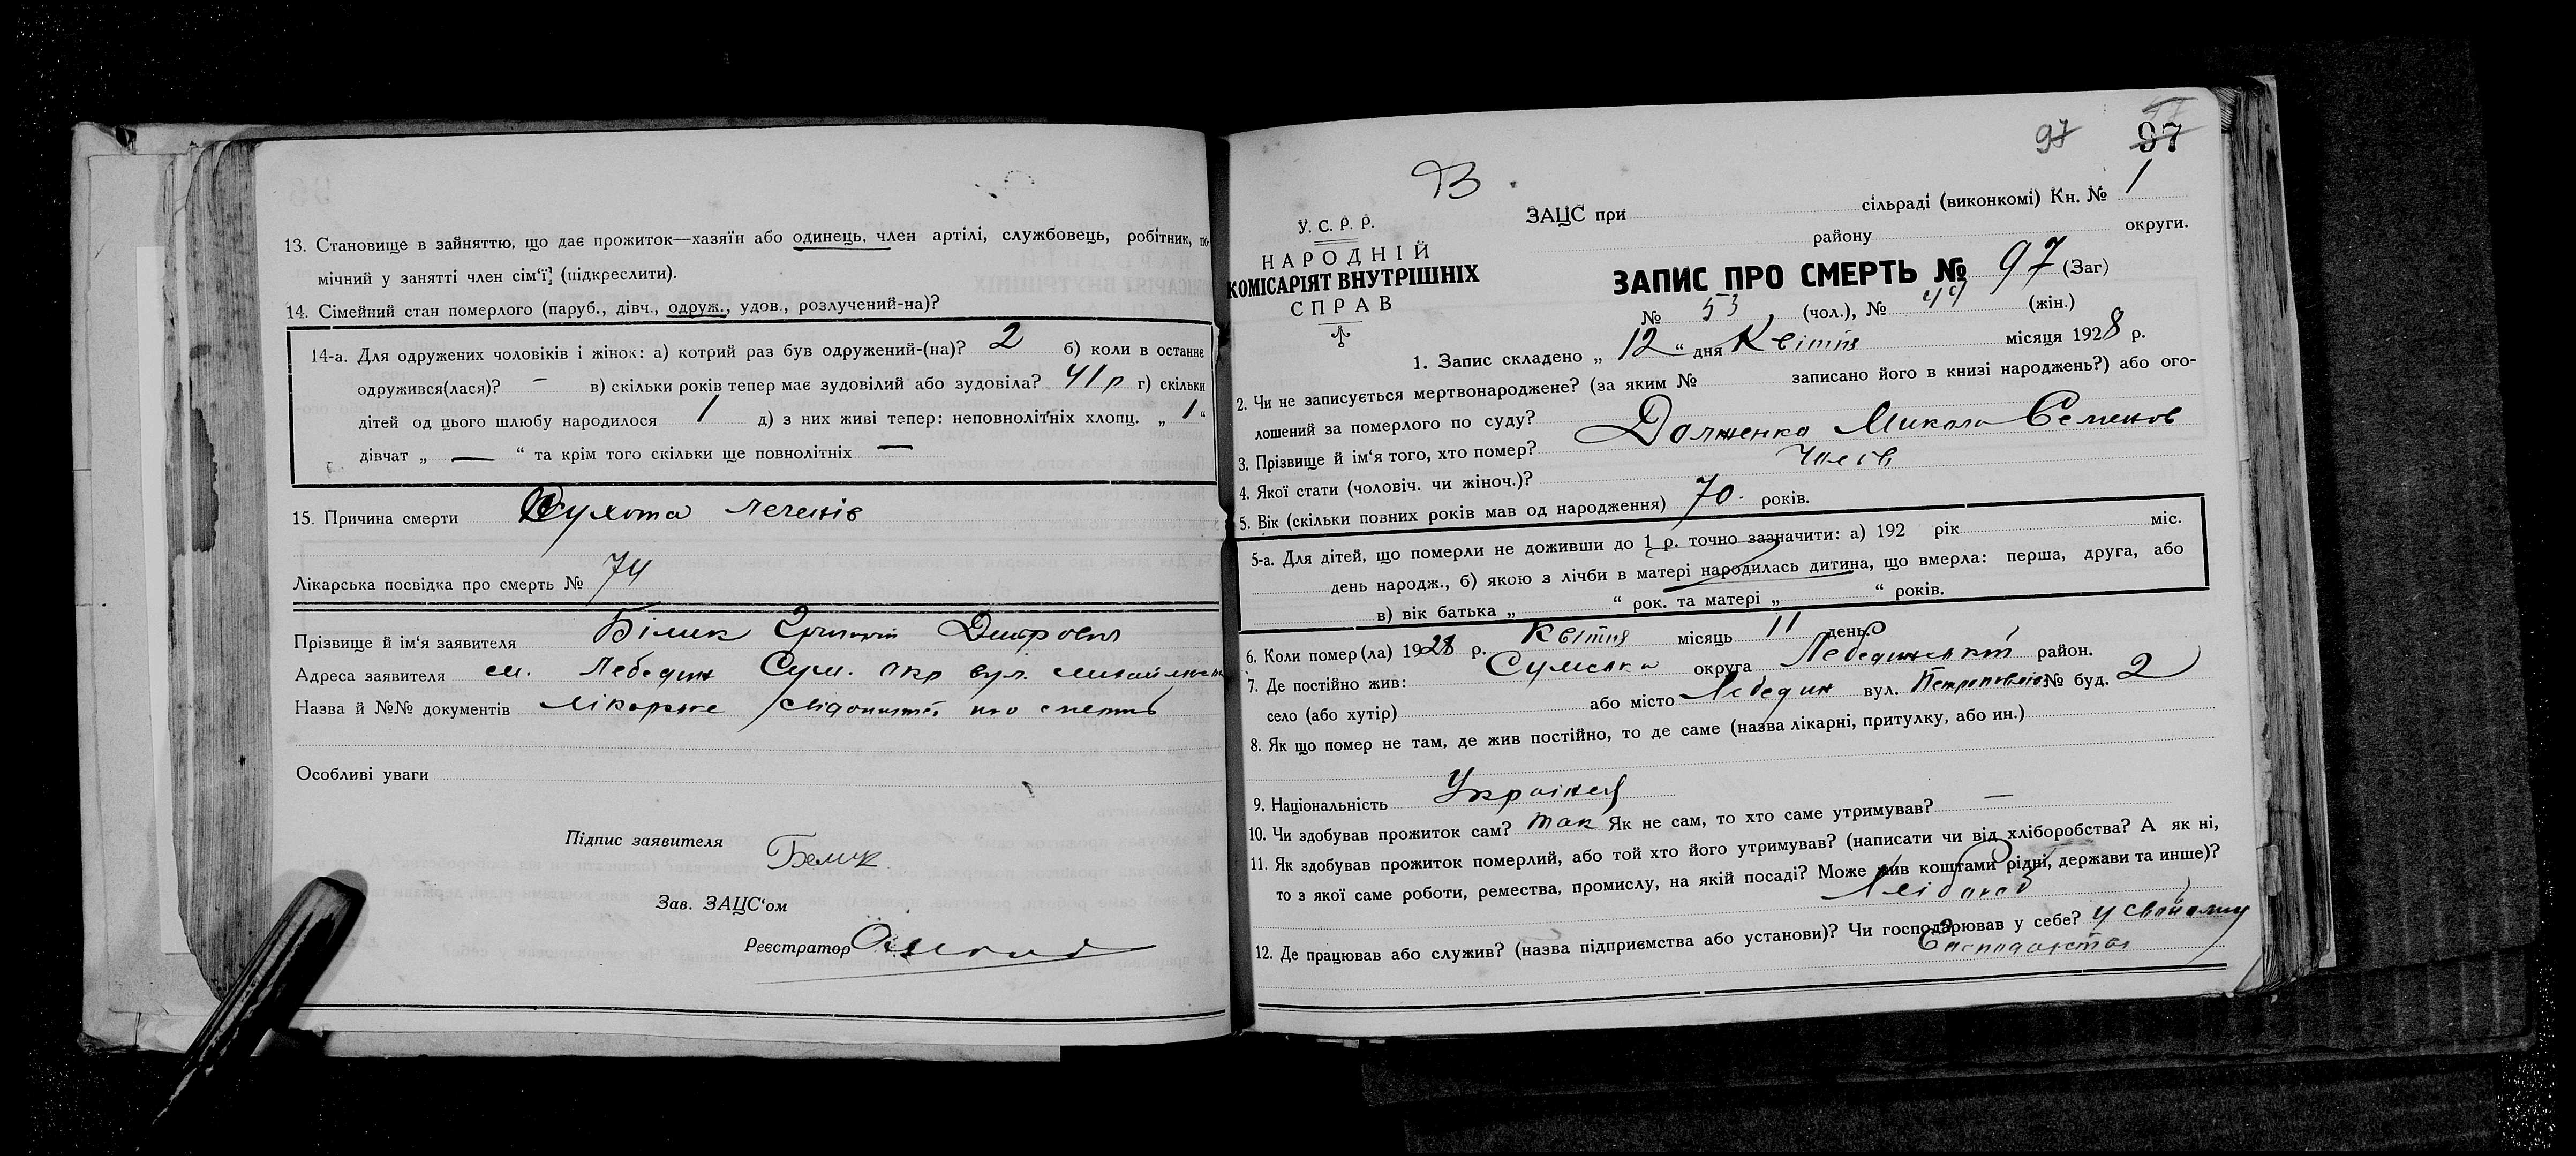 13. Становище в зайняттю, що дає прожиток—хазяїн або одинець, член артілі, службовець, робітник, по-
мічний у занятті член сім‘ї, (підкреслити).
14. Сімейний стан померлого (паруб., дівч., одруж., удов., розлучений-на)?
14-а. Для одружених чоловіків і жінок: а) котрий раз був одружений-(на)? 2 б) коли в останнє
одружився(лася)? — в) скільки років тепер має зудовілий або зудовіла? 41 р г) скільки
дітей од цього шлюбу народилося 1 д) з них живі тепер: неповнолітніх хлопц. „ 1 “
дівчат „ — “ та крім того скільки ще повнолітніх —
15. Причина смерти Сухота легенів
Лікарська посвідка про смерть № 74
Прізвище й ім‘я заявителя Білик Григорій Дмитрович
Адреса заявителя м. Лебедин Сум. окр вул.
Назва й №№ документів лікарське про смерть
Особливі уваги
Підпис заявителя Белик
Зав. ЗАЦС‘ом
Реєстратор
97 97
В
У. С. Р. Р.
НАРОДНІЙ
КОМІСАРІЯТ ВНУТРІШНІХ
СПРАВ
ЗАЦС при сільраді (виконкомі) Кн. № 1
району округи.
ЗАПИС ПРО СМЕРТЬ № 97 (Заг)
№ 53 (чол.), № 44 (жін.)
1. Запис складено „ 12 “ дня Квітня місяця 1928 р.
2. Чи не записується мертвонароджене? (за яким № записано його в книзі народжень?) або ого-
лошений за померлого по суду?
3. Прізвище й ім‘я того, хто помер? Долженко Микола Семенов
4. Якої стати (чоловіч. чи жіноч.)? чолов
5. Вік (скільки повних років мав од народження) 70 років.
5-а. Для дітей, що померли не доживши до 1 р. точно зазначити: а) 192 рік міс.
день народж., б) якою з лічби в матері народилась дитина, що вмерла: перша, друга, або
в) вік батька „ “ рок. та матері „ “ років.
6. Коли помер(ла) 1928 р. Квітня місяць 11 день.
7. Де постійно жив: Сумська округа Лебединський район.
село (або хутір) або місто Лебедин вул. № буд. 2
8. Як що помер не там, де жив постійно, то де саме (назва лікарні, притулку, або ин.)
9. Національність Українец
10. Чи здобував прожиток сам? так Як не сам, то хто саме утримував? —
11. Як здобував прожиток померлий, або той хто його утримував? (написати чи від хліборобства? А як ні,
то з якої саме роботи, ремества, промислу, на якій посаді? Може жив коштами рідні, держави та инше)?
Хлібороб
12. Де працював або служив? (назва підприємства або установи)? Чи господарював у себе? у свойому
господарстві